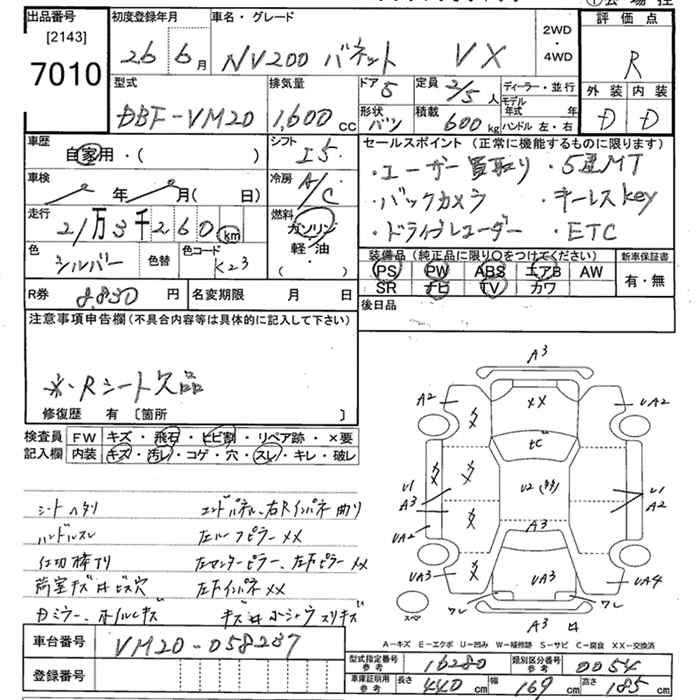 出品番号 [2143] 7010
初度登録年月 26 6月
車名・グレード NV200 バネット VX
2WD・4WD
評価点 R
外装 D 内装 D
型式 DBF-VM20
排気量 1,600cc
ドア 5
形状 バン
定員 2/5人
積載 600kg
ディーラー・並行
モデル年式 年
ハンドル 左・右
車歴 自家用・( )
シフト I5
セールスポイント(正常に機能するものに限ります)
・ユーザー買取り ・5速MT
・バックカメラ ・キーレスkey
・ドライブレコーダー ・ETC
車検 年 月(日)
冷房 A/C
走行 21万3千260km
燃料 ガソリン 軽・油 ・( )
色 シルバー 色替 色コード K23
装備品(純正品に限り○をつけてください) 新車保証書
PS PW ABS エアB AW 有・無
SR ナビ TV カワ
R券 8,830円 名変期限 月 日
後日品
注意事項申告欄(不具合内容等は具体的に記入して下さい)
※・Rシート欠品
修復歴 有 〔箇所 〕
検査員 FW キズ・飛石・ヒビ割・リペア跡・×要
記入欄 内装 キズ・汚レ・コゲ・穴・スレ・キレ・破レ
シートヘタリ エンドパネル、右Rインパネ曲り
ハンドルスレ 左ルーフピラーXX
仕切棒アリ 左センターピラー、左下ピラーXX
荷室キズ サビ穴 左下インパネXX
A3
A2 XX UA2
tC
U1 A3 U2 U1 A2
UA2 A3
UA3 UA3 UA4
ワレ ワレ
スペア A3
A-キズ E-エクボ U-凹み W-補修跡 S-サビ C-腐食 XX-交換済
車台番号 VM20-058237
登録番号
型式指定番号 参考 16280 類別区分番号 参考 0054
車庫証明用 参考 長さ 440cm 幅 169cm 高さ 185cm